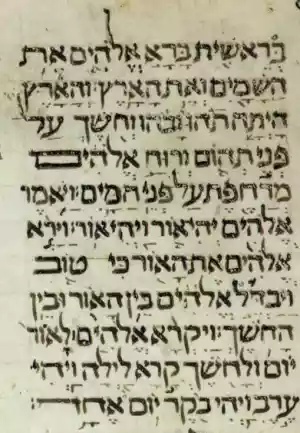 בראשית ברא אלהים את
השמים ואת הארץ׃ והארץ
היתה תהו ובהו וחשך על
פני תהום ורוח אלהים
מרחפת על פני המים׃ ויאמר
אלהים יהי אור ויהי אור׃ וירא
אלהים את האור כי טוב
ויבדל אלהים בין האור ובין
החשך׃ ויקרא אלהים לאור
יום ולחשך קרא לילה ויהי
ערב ויהי בקר יום אחד׃